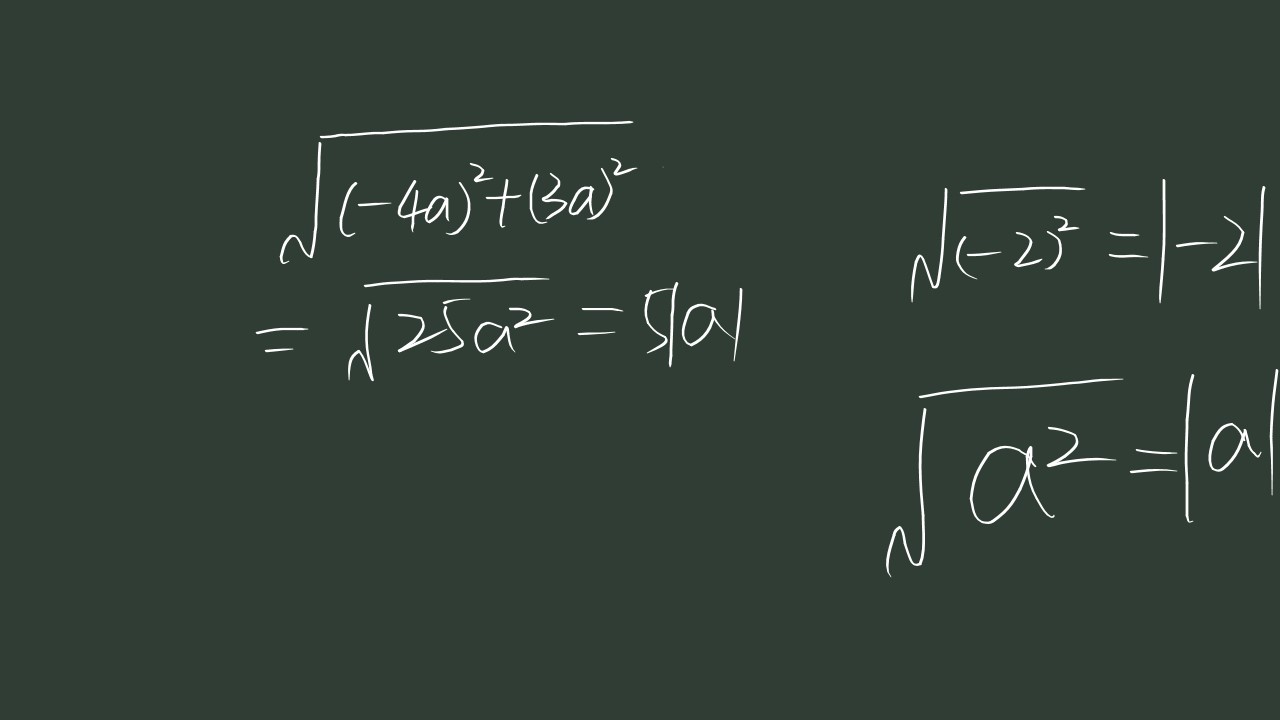 √((-4a)²+(3a)²)
= √(25a²) = 5|a|
√((-2)²) = |-2|
√(a²) = |a|